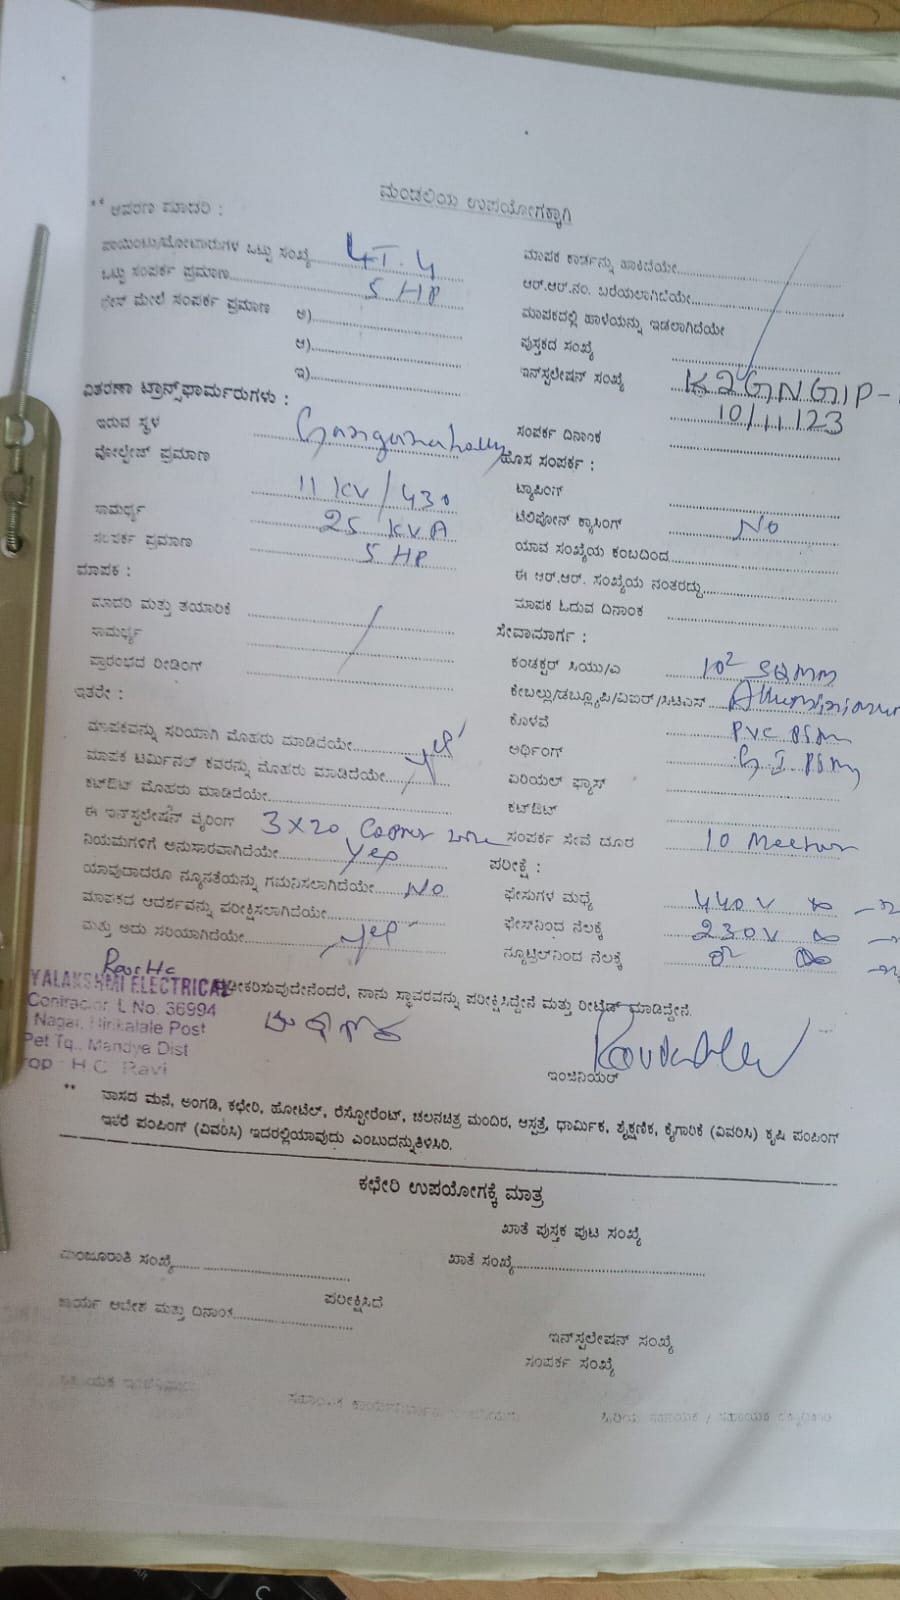 ಮಂಡಲಿಯ ಉಪಯೋಗಕ್ಕಾಗಿ
** ಆವರಣ ಮಾದರಿ :
ಪಾಯಿಂಟು/ಮೋಟಾರುಗಳ ಒಟ್ಟು ಸಂಖ್ಯೆ
ಒಟ್ಟು ಸಂಪರ್ಕ ಪ್ರಮಾಣ 5 HP
ಮೇಲೆ ಸಂಪರ್ಕ ಪ್ರಮಾಣ ಅ)
ಆ)
ಇ)
ವಿತರಣಾ ಟ್ರಾನ್ಸ್‌ಫಾರ್ಮರುಗಳು :
ಇರುವ ಸ್ಥಳ
ವೋಲ್ಟೇಜ್ ಪ್ರಮಾಣ 11 KV / 430
ಸಾಮರ್ಥ್ಯ 25 KVA
ಸಂಪರ್ಕ ಪ್ರಮಾಣ 5 HP
ಮಾಪಕ :
ಮಾದರಿ ಮತ್ತು ತಯಾರಿಕೆ
ಸಾಮರ್ಥ್ಯ
ಪ್ರಾರಂಭದ ರೀಡಿಂಗ್
ಇತರೇ :
ಮಾಪಕವನ್ನು ಸರಿಯಾಗಿ ಮೊಹರು ಮಾಡಿದೆಯೇ yes
ಮಾಪಕ ಟರ್ಮಿನಲ್ ಕವರನ್ನು ಮೊಹರು ಮಾಡಿದೆಯೇ
ಕಟ್‌ಔಟ್ ಮೊಹರು ಮಾಡಿದೆಯೇ
ಈ ಇನ್‌ಸ್ಟಲೇಷನ್ ವೈರಿಂಗ್ 3 x 20 Copper wire
ನಿಯಮಗಳಿಗೆ ಅನುಸಾರವಾಗಿದೆಯೇ yes
ಯಾವುದಾದರೂ ನ್ಯೂನತೆಯನ್ನು ಗಮನಿಸಲಾಗಿದೆಯೇ No
ಮಾಪಕದ ಆದರ್ಶವನ್ನು ಪರೀಕ್ಷಿಸಲಾಗಿದೆಯೇ
ಮತ್ತು ಅದು ಸರಿಯಾಗಿದೆಯೇ yes
ಮಾಪಕ ಕಾರ್ಡನ್ನು ಹಾಕಿದೆಯೇ
ಆರ್.ಆರ್.ನಂ. ಬರೆಯಲಾಗಿದೆಯೇ
ಮಾಪಕದಲ್ಲಿ ಹಾಳೆಯನ್ನು ಇಡಲಾಗಿದೆಯೇ
ಪುಸ್ತಕದ ಸಂಖ್ಯೆ
ಇನ್‌ಸ್ಟಲೇಷನ್ ಸಂಖ್ಯೆ
10/11/23
ಸಂಪರ್ಕ ದಿನಾಂಕ
ಹೊಸ ಸಂಪರ್ಕ :
ಟ್ಯಾಪಿಂಗ್
ಟೆಲಿಪೋನ್ ಕ್ರಾಸಿಂಗ್ No
ಯಾವ ಸಂಖ್ಯೆಯ ಕಂಬದಿಂದ
ಈ ಆರ್.ಆರ್. ಸಂಖ್ಯೆಯ ನಂತರದ್ದು
ಮಾಪಕ ಓದುವ ದಿನಾಂಕ
ಸೇವಾಮಾರ್ಗ :
ಕಂಡಕ್ಟರ್ ಸಿಯು/ಎ 10² SQMM
ಕೇಬಲ್ಲು/ಡಬ್ಲ್ಯೂಪಿ/ವಿಐಆರ್/ಸಿಟಿಎಸ್
ಕೊಳವೆ PVC
ಅರ್ಥಿಂಗ್ G.I
ಏರಿಯಲ್ ಫ್ಯೂಸ್
ಕಟ್‌ಔಟ್
ಸಂಪರ್ಕ ಸೇವೆ ದೂರ 10
ಪರೀಕ್ಷೆ :
ಫೇಸುಗಳ ಮಧ್ಯೆ 440V ∞
ಫೇಸ್‌ನಿಂದ ನೆಲಕ್ಕೆ 230V ∞
ನ್ಯೂಟ್ರಲ್‌ನಿಂದ ನೆಲಕ್ಕೆ ∞
YALAKSHMI ELECTRICAL
Contractor L No. 36994
Nagar, Hirikalale Post
Pet Tq., Mandya Dist
rop : H.C. Ravi
ಕರಿಸುವುದೇನೆಂದರೆ, ನಾನು ಸ್ಥಾವರವನ್ನು ಪರೀಕ್ಷಿಸಿದ್ದೇನೆ ಮತ್ತು ರೀಟೈಡ್ ಮಾಡಿದ್ದೇನೆ.
ಇಂಜಿನಿಯರ್
** ವಾಸದ ಮನೆ, ಅಂಗಡಿ, ಕಛೇರಿ, ಹೋಟೆಲ್, ರೆಸ್ಟೋರೆಂಟ್, ಚಲನಚಿತ್ರ ಮಂದಿರ, ಆಸ್ಪತ್ರೆ, ಧಾರ್ಮಿಕ, ಶೈಕ್ಷಣಿಕ, ಕೈಗಾರಿಕೆ (ವಿವರಿಸಿ) ಕೃಷಿ ಪಂಪಿಂಗ್
ಇತರೆ ಪಂಪಿಂಗ್ (ವಿವರಿಸಿ) ಇದರಲ್ಲಿಯಾವುದು ಎಂಬುದನ್ನುತಿಳಿಸಿರಿ.
ಕಛೇರಿ ಉಪಯೋಗಕ್ಕೆ ಮಾತ್ರ
ಖಾತೆ ಪುಸ್ತಕ ಪುಟ ಸಂಖ್ಯೆ
ಮಂಜೂರಾತಿ ಸಂಖ್ಯೆ ಖಾತೆ ಸಂಖ್ಯೆ
ಪರೀಕ್ಷಿಸಿದೆ
ಕಾರ್ಯ ಆದೇಶ ಮತ್ತು ದಿನಾಂಕ
ಇನ್‌ಸ್ಟಲೇಷನ್ ಸಂಖ್ಯೆ
ಸಂಪರ್ಕ ಸಂಖ್ಯೆ